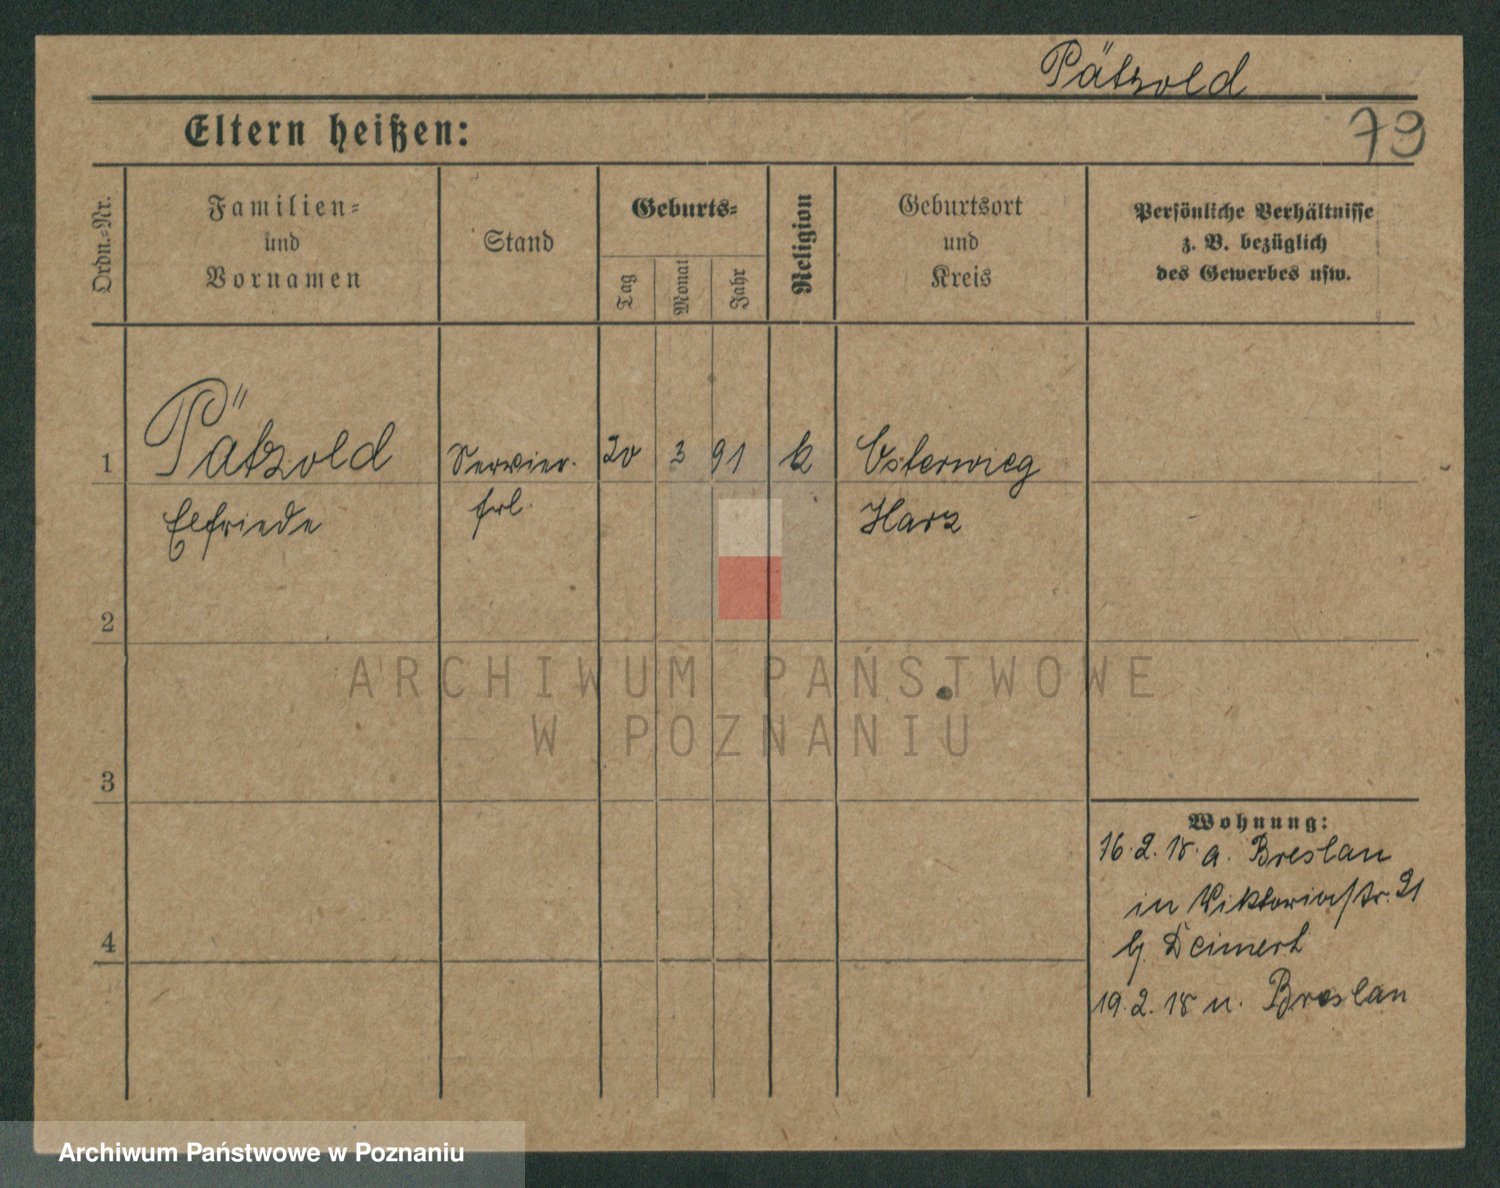 Pätzold
Eltern heißen:
79
Ordn.-Nr.
Familien-
und
Vornamen
Stand
Geburts-
Tag
Monat
Jahr
Religion
Geburtsort
und
Kreis
Persönliche Verhältnisse
z. B. bezüglich
des Gewerbes usw.
1
Pätzold
Servier.
20
3
91
k
Osterwieg
Elfriede
frl.
Harz
2
ARCHIWUM PAŃSTWOWE
W POZNANIU
3
Wohnung:
16.2.18 a. Breslau
in Viktoriastr. 21
b/ Deimert
4
19.2.18 n. Breslau
Archiwum Państwowe w Poznaniu